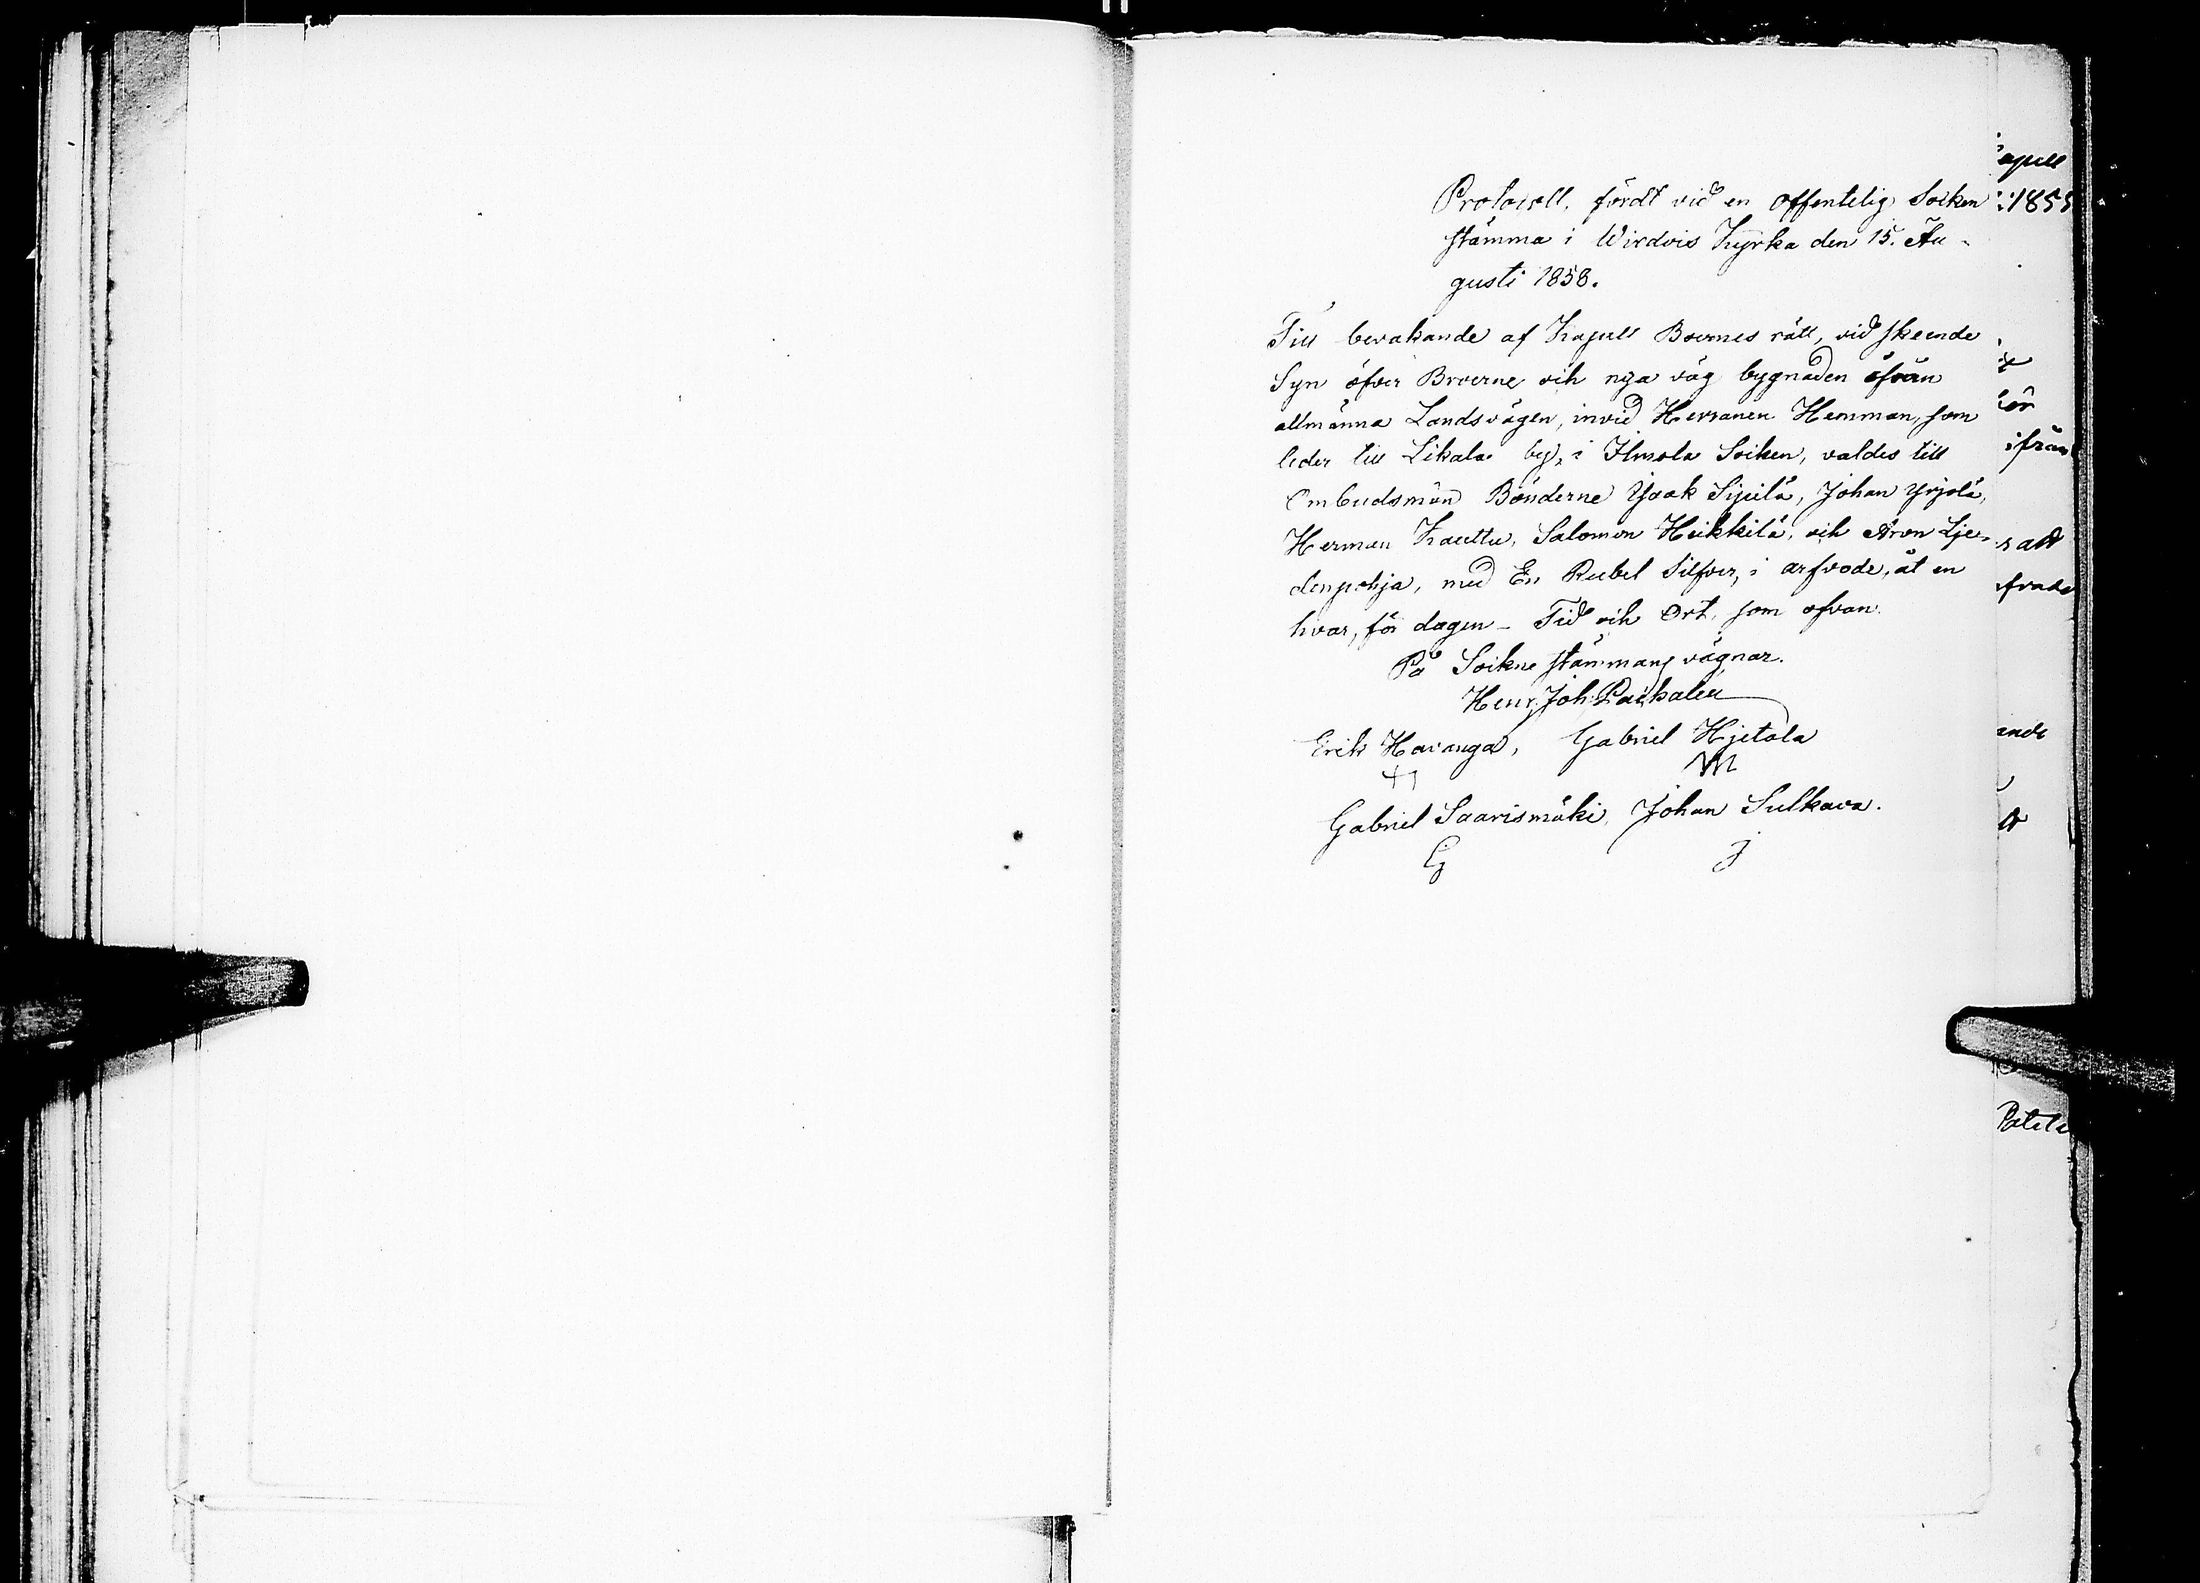 Protocoll, fördt vid en offentelig Socken
stämma i Wirdois Kyrka den 15. Au-
gusti 1858.
Till bevakande af Kapell Boernes rätt, vid skeende
Syn öfver Broerne och nya väg bygnaden ifrån
allmänna Landsvägen, invid Herranen Hemman, som
leder till Likala by, i Ilmola Socken, valdes till
Ombudsmän Bönderne Isaak Sipilä, Johan Yrjölä,
Herman Kauttu, Salomon Heikkilä, och Aron Lje-
denpohja, med En Rubel Silfver, i arfvode, åt en
hvar, för dagen - Tid och Ort, som ofvan.
På Sockne stämmans vägnar.
Henr. Joh. Packalén
Erik Havanga, Gabriel Hjetala
Gabriel Saarismäki, Johan Sulkava.
G J
apell
1855
ifrån
att
ande